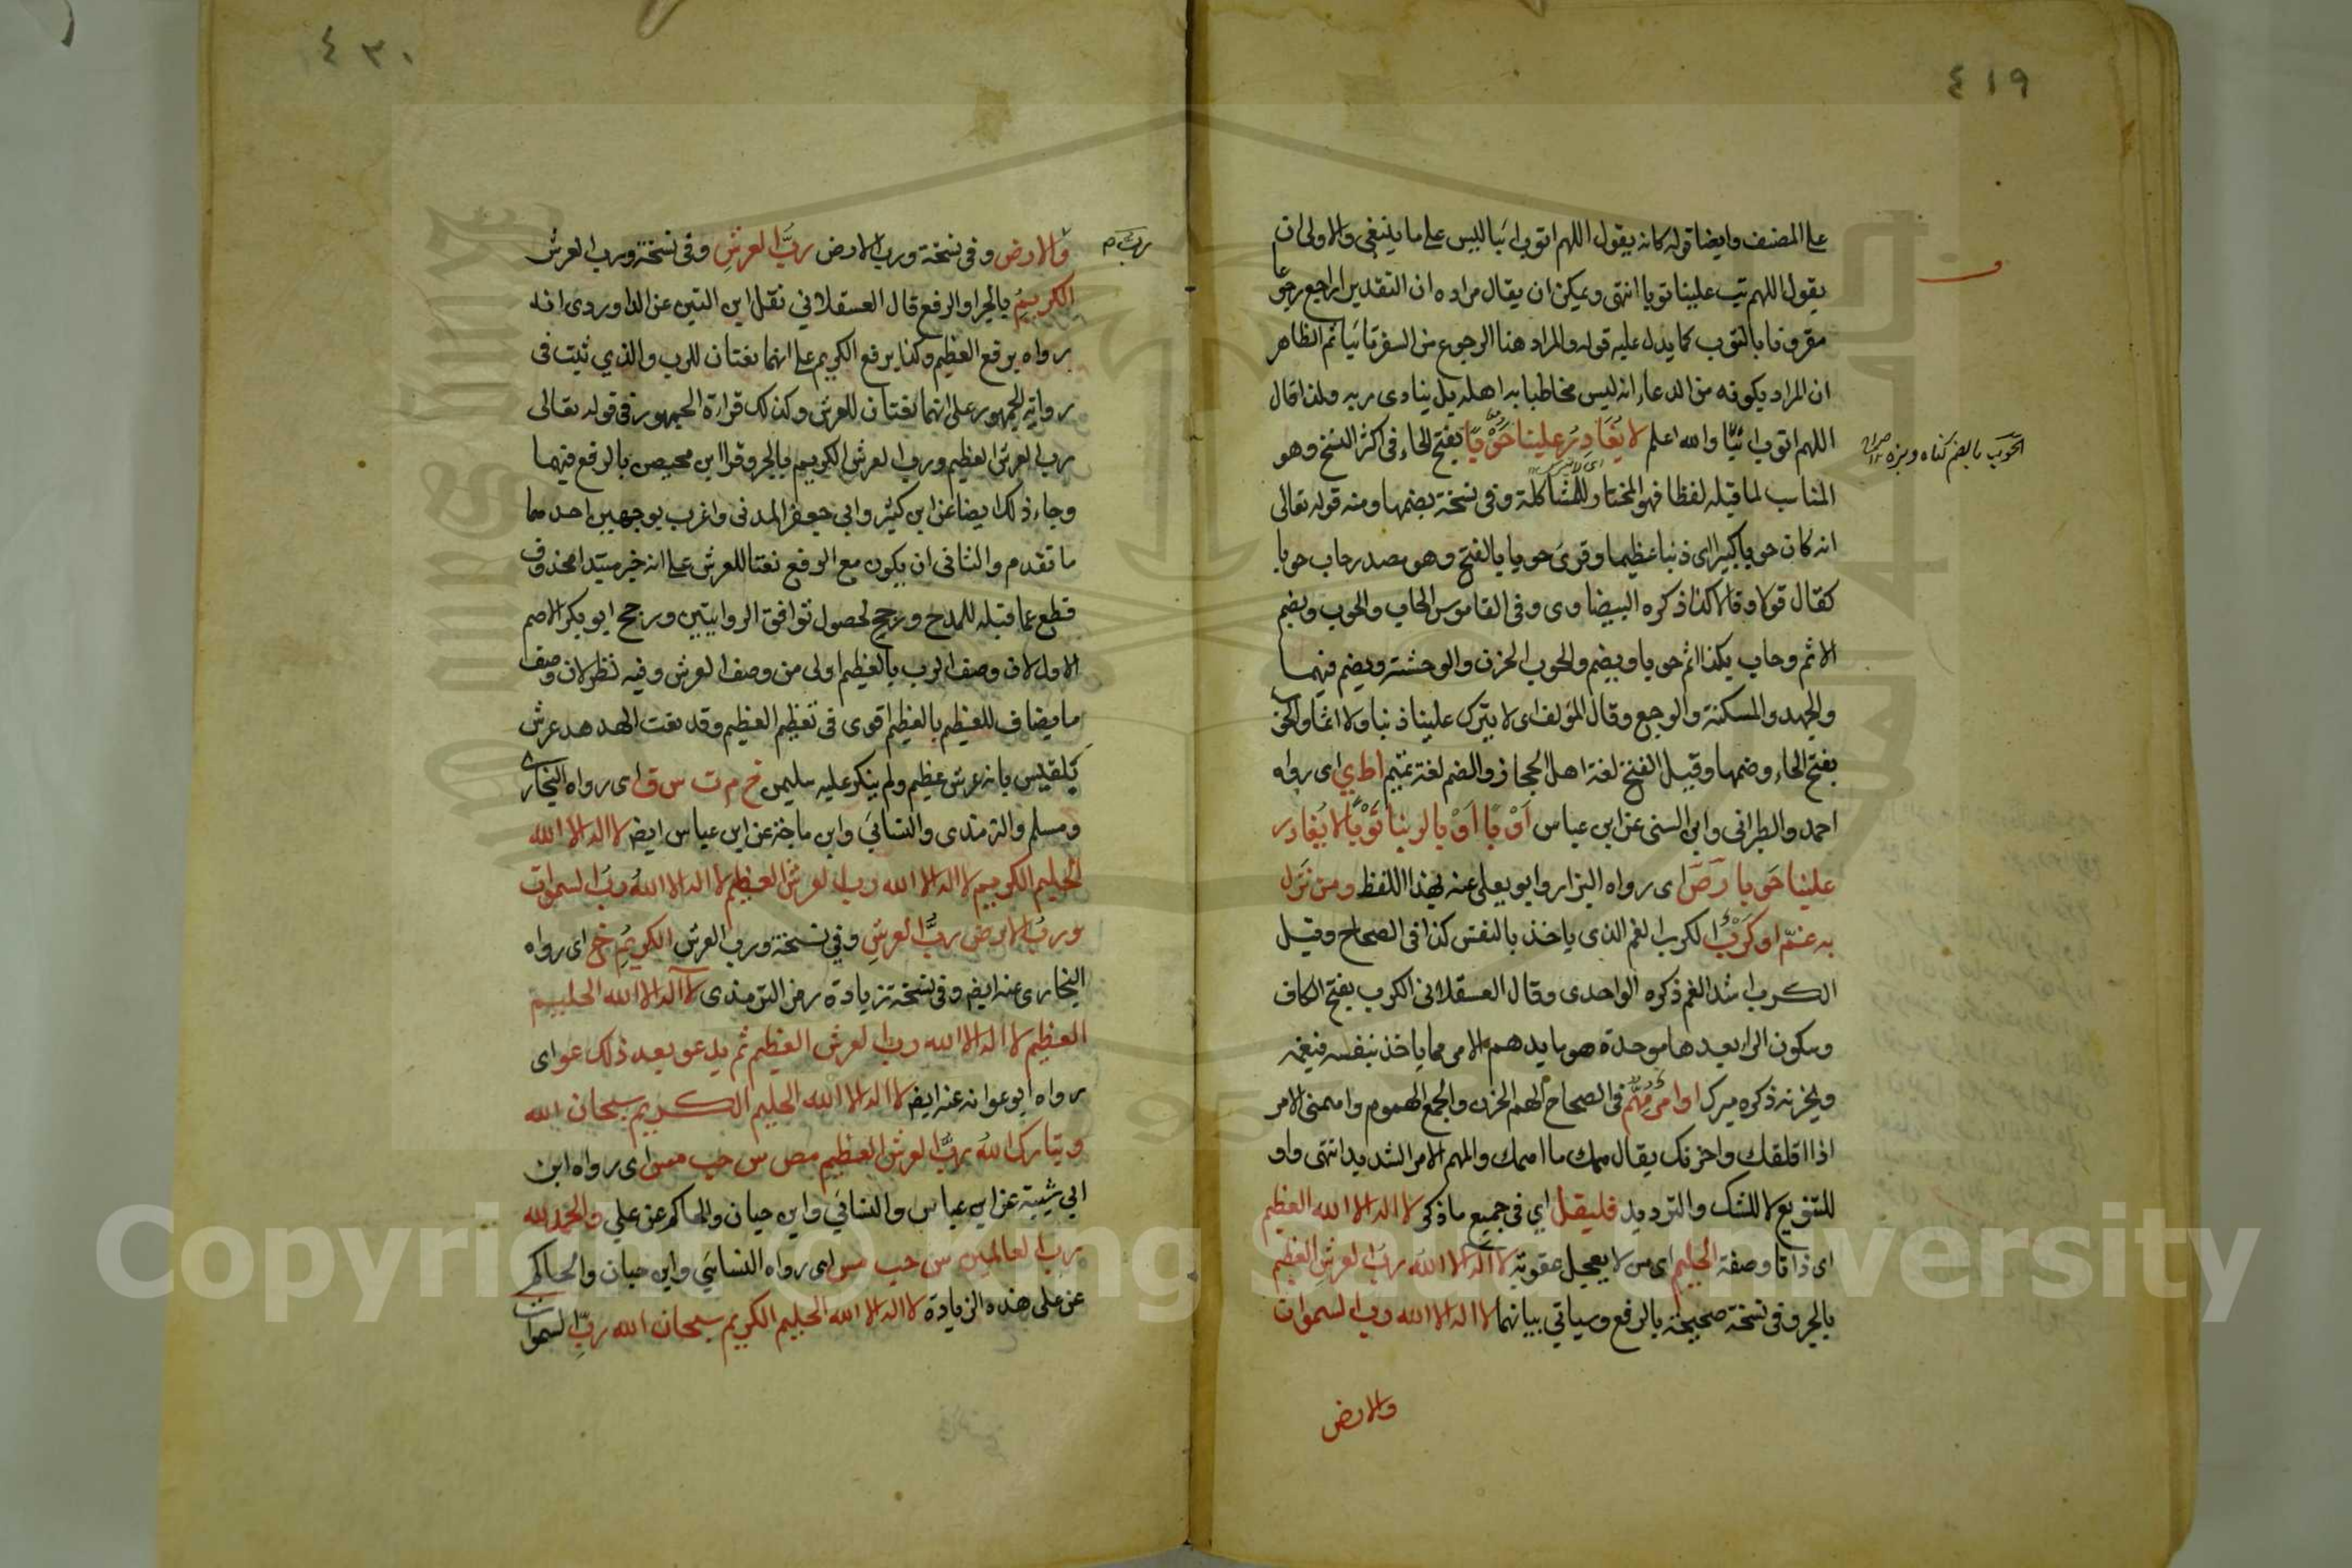 ٤١٩
على المصنف وايضا قوله كانه يقول اللهم اتوب ائبا ليس على ما ينبغي والاولى ان
يقول اللهم تب علينا توبا انتهى ويمكن ان يقال مراده ان التقدير ارجع رجوعا
مقرونا بالتوب كما يدل عليه قوله والمراد هنا الرجوع من السفر تائبا ثم الظاهر
ان المراد بكونه من الدعاء انه ليس مخاطبا به اهله بل ينادى ربه ولذا قال
اللهم اتوب ائبا والله اعلم لا يُغَادِرُ علينا حَوْبًا بفتح الحاء فى اكثر النسخ وهو
اى لا يترك
الحَوب بالضم كناه وبزه صراح
المناسب لما قبله لفظا فهو المختار للمشاكلة وفى نسخة بضمها ومنه قوله تعالى
انه كان حوبا كبيرا اى ذنبا عظيما وقرئ حوبا بالفتح وهو مصدر حاب حوبا
كقال قولا وقالا كذا ذكره البيضاوى وفى القاموس الحاب والحوب ويضم
الاثم وحاب بكذا اثم حوبا ويضم والحوب الحزن والوحشة ويضم فيهما
والجهد والمسكنة والوجع وقال المؤلف اى لا يترك علينا ذنبا ولا اثما والحوب
بفتح الحاء وضمها وقيل الفتح لغة اهل الحجاز والضم لغة تميم ا ط ي اى رواه
احمد والطبرانى وابن السنى عن ابن عباس اَوْبًا اَوْبا لربنا تَوْبًا لا يُغادر
علينا حَوبا ر ص اى رواه البزار وابو يعلى عنه بهذا اللفظ ومن نَزَل
به غَمّ او كَرْبٌ الكرب الغم الذى ياخذ بالنفس كذا فى الصحاح وقيل
الكرب اشد الغم ذكره الواحدى وقال العسقلانى الكرب بفتح الكاف
وسكون الراء بعدها موحدة هو ما يدهم الامر مما ياخذ بنفسه فيغمه
ويحزنه ذكره ميرك او امرٌ مُهِمٌّ فى الصحاح الهم الحزن والجمع الهموم واهمنى الامر
اذا اقلقك واحزنك يقال همك ما اهمك والمهم الامر الشديد انتهى واو
للتنويع لا للشك والترديد فليقل اي فى جميع ما ذكر لا اله الا الله العظيم
اى ذاتا وصفة الحليم اى من لا يعجل عقوبته لا اله الا الله ربُ العرشِ العظيم
بالجر وفى نسخة صحيحة بالرفع وسياتي بيانهما لا اله الا الله رب السموات
والارض
٤٢٠
والارض وفى نسخة ورب الارض ربُّ العرشِ وفى نسخة ورب العرش
رب م
الكريمُ بالجر والرفع قال العسقلاني نقل ابن التين عن الداوردى انه
رواه برفع العظيم وكذا برفع الكريم على انهما نعتان للرب والذي ثبت فى
رواية الجمهور على انهما نعتان للعرش وكذلك قراءة الجمهور فى قوله تعالى
رب العرش العظيم ورب العرش الكريم بالجر وقرا ابن محيصن بالرفع فيهما
وجاء ذلك ايضا عن ابن كثير وابي جعفر المدنى واعرب بوجهين احدهما
ما تقدم والثانى ان يكون مع الرفع نعتا للعرش على انه خبر مبتدا محذوف
قطع عما قبله للمدح ورجح لحصول توافق الروايتين ورجح ابو بكر الاصم
الاول لان وصف الرب بالعظيم اولى من وصف العرش وفيه نظر لان وصف
ما يضاف للعظيم بالعظيم اقوى فى تعظيم العظيم وقد نعت الهدهد عرش
بَلقيس بانه عرش عظيم ولم ينكر عليه سليمن خ م ت س ق اى رواه البخارى
ومسلم والترمذى والنسائي وابن ماجة عن ابن عباس ايضا لا اله الا الله
الحليم الكريم لا اله الا الله رب العرش العظيم لا اله الا اللهُ ربُ السموات
وربُ الارض ربُّ العرشِ وفي نسخة ورب العرش الكريمُ خ اى رواه
البخارى عنه ايضا وفى نسخة زيادة رمز الترمذى لا اله الا الله الحليم
العظيم لا اله الا الله رب العرش العظيم ثم يدعو بعد ذلك عو اى
رواه ابو عوانه عنه ايضا لا اله الا الله الحليم الكريم سبحان الله
وتبارك اللهُ ربُّ العرش العظيم مص س حب مس اى رواه ابن
ابي شيبة عن ابن عباس والنسائي وابن حبان والحاكم عن علي والحمد لله
رب العالمين س حب مس اى رواه النسائي وابن حبان والحاكم
عن على هذه الزيادة لا اله الا الله الحليم الكريم سبحان الله ربِّ السموات
Copyright © King Saud University